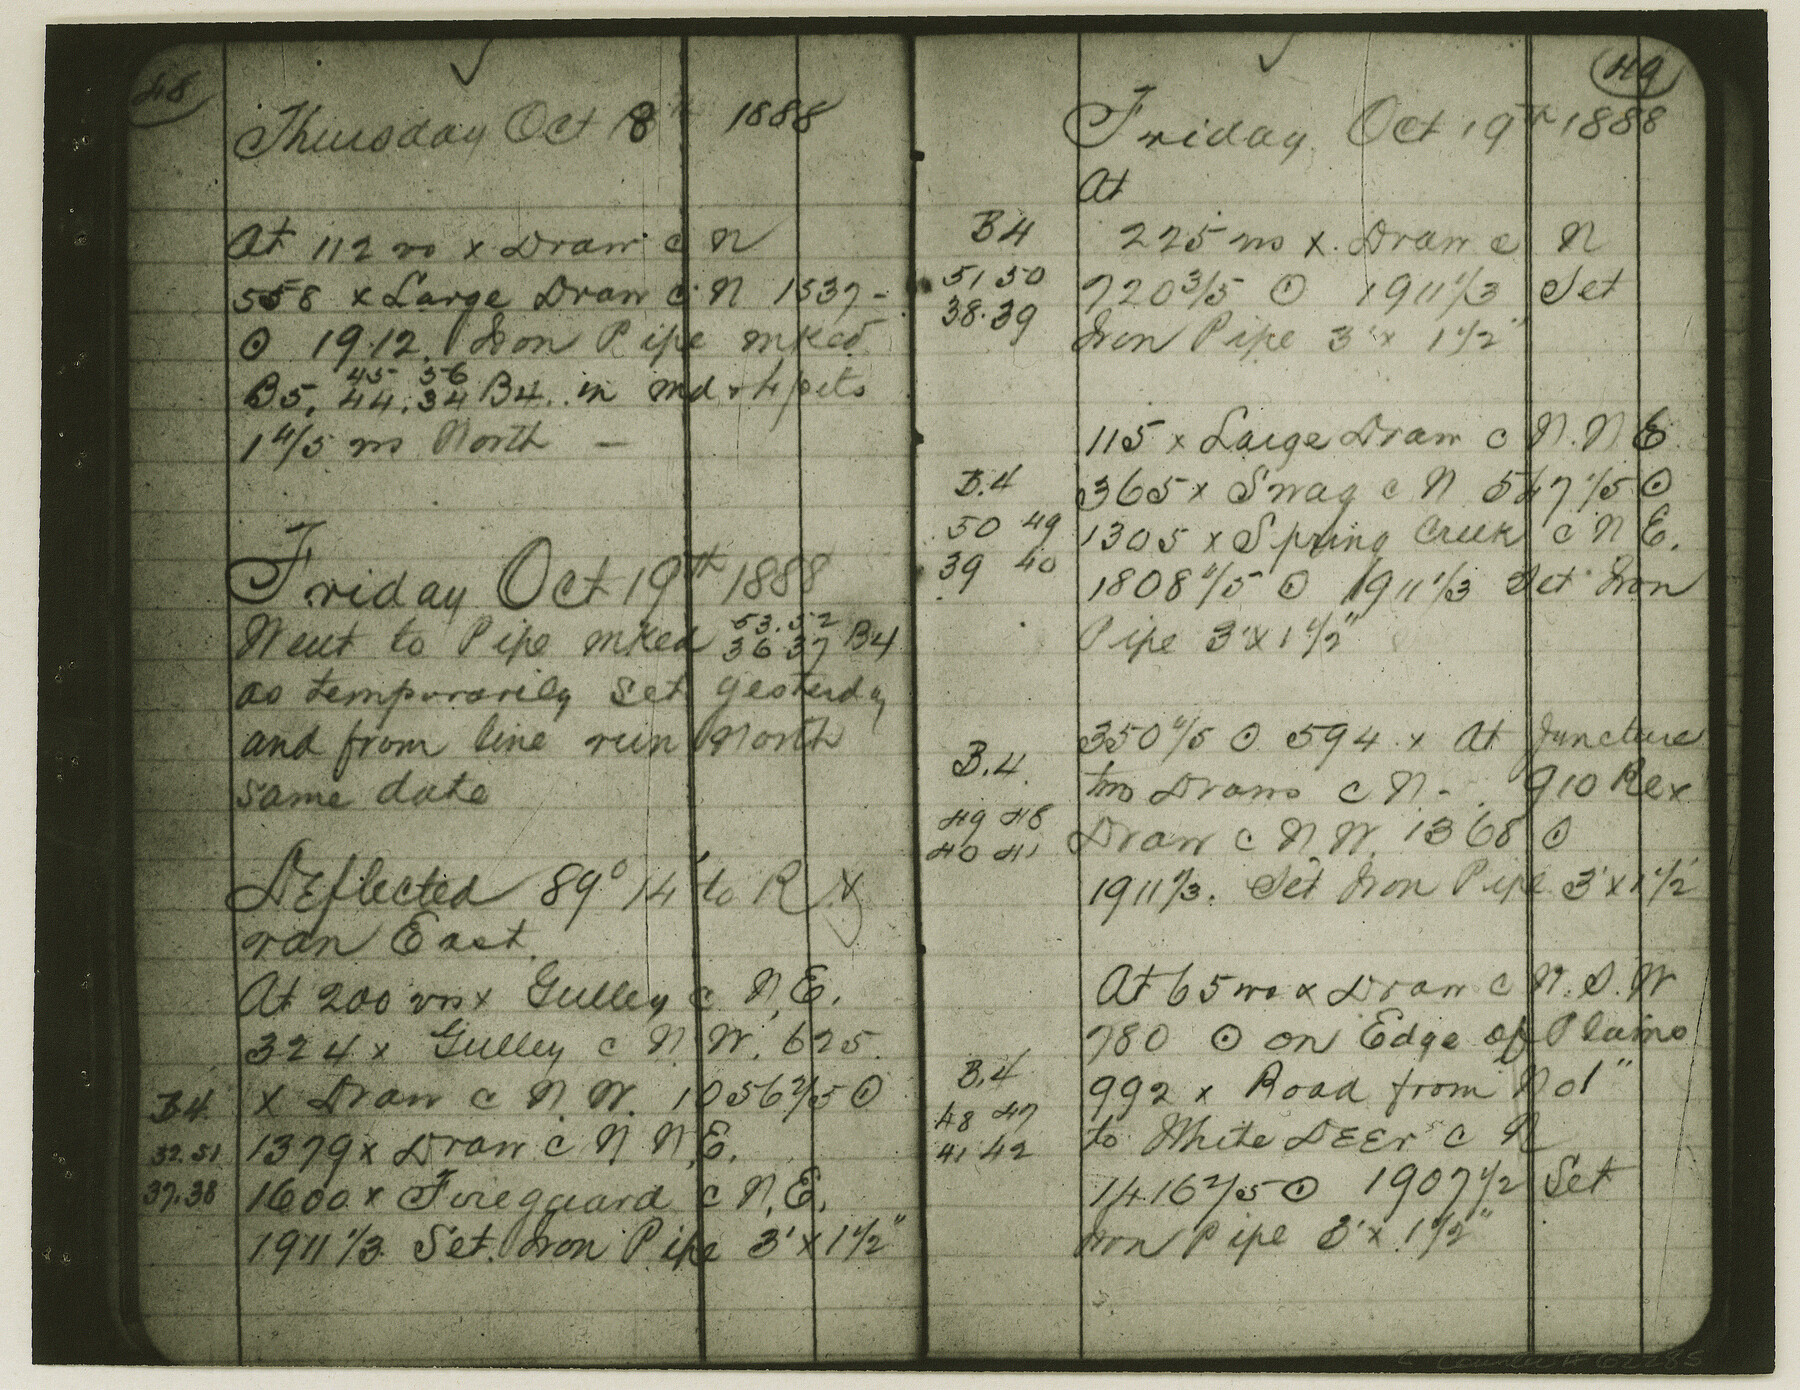 48
Thursday Oct 18th 1888
At 112 vrs x Draw c N
558 x Large Draw c N 1537-
⊙ 1912. Iron Pipe mked
45 56
B5, 44.34 B4. in md & 4 pits
1 4/5 vrs North —
Friday Oct 19th 1888
53.52
Went to Pipe mked 36 37 B4
as temporarily set yesterday
and from line run North
same date
Deflected 89° 14' to R &
ran East.
At 200 vrs x Gulley c N.E.
324 x Gulley c N.W. 625.
B4. x Draw c N.W. 1056 2/5 ⊙
52.51 1379 x Draw c N N.E.
37.38 1600 x Fireguard c N.E.
1911 1/3 Set Iron Pipe 3' x 1 1/2"
49
Friday Oct 19th 1888
At
B4 225 vrs x Draw c N
51 50 720 3/5 ⊙ 1911 1/3 Set
38.39 Iron Pipe 3' x 1 1/2"
115 x Large Draw c N.N.E.
B.4 365 x Swag c N 547 1/5 ⊙
50 49 1305 x Spring Creek c N E.
39 40 1808 4/5 ⊙ 1911 1/3 Set Iron
Pipe 3' x 1 1/2"
350 4/5 ⊙ 594 x At Juncture
B.4. two Draws c N-. 910 Re x
49 48 Draw c N W. 1368 ⊙
40 41 1911 1/3. Set Iron Pipe 3' x 1 1/2"
At 65 vrs x Draw c N. S. W
780 ⊙ on Edge of Plains
B.4 992 x Road from "No 1"
48 47 to White DEEr c N
41 42 1416 2/5 ⊙ 1907 1/2 Set
Iron Pipe 3' x 1 1/2"
Counter # 62285